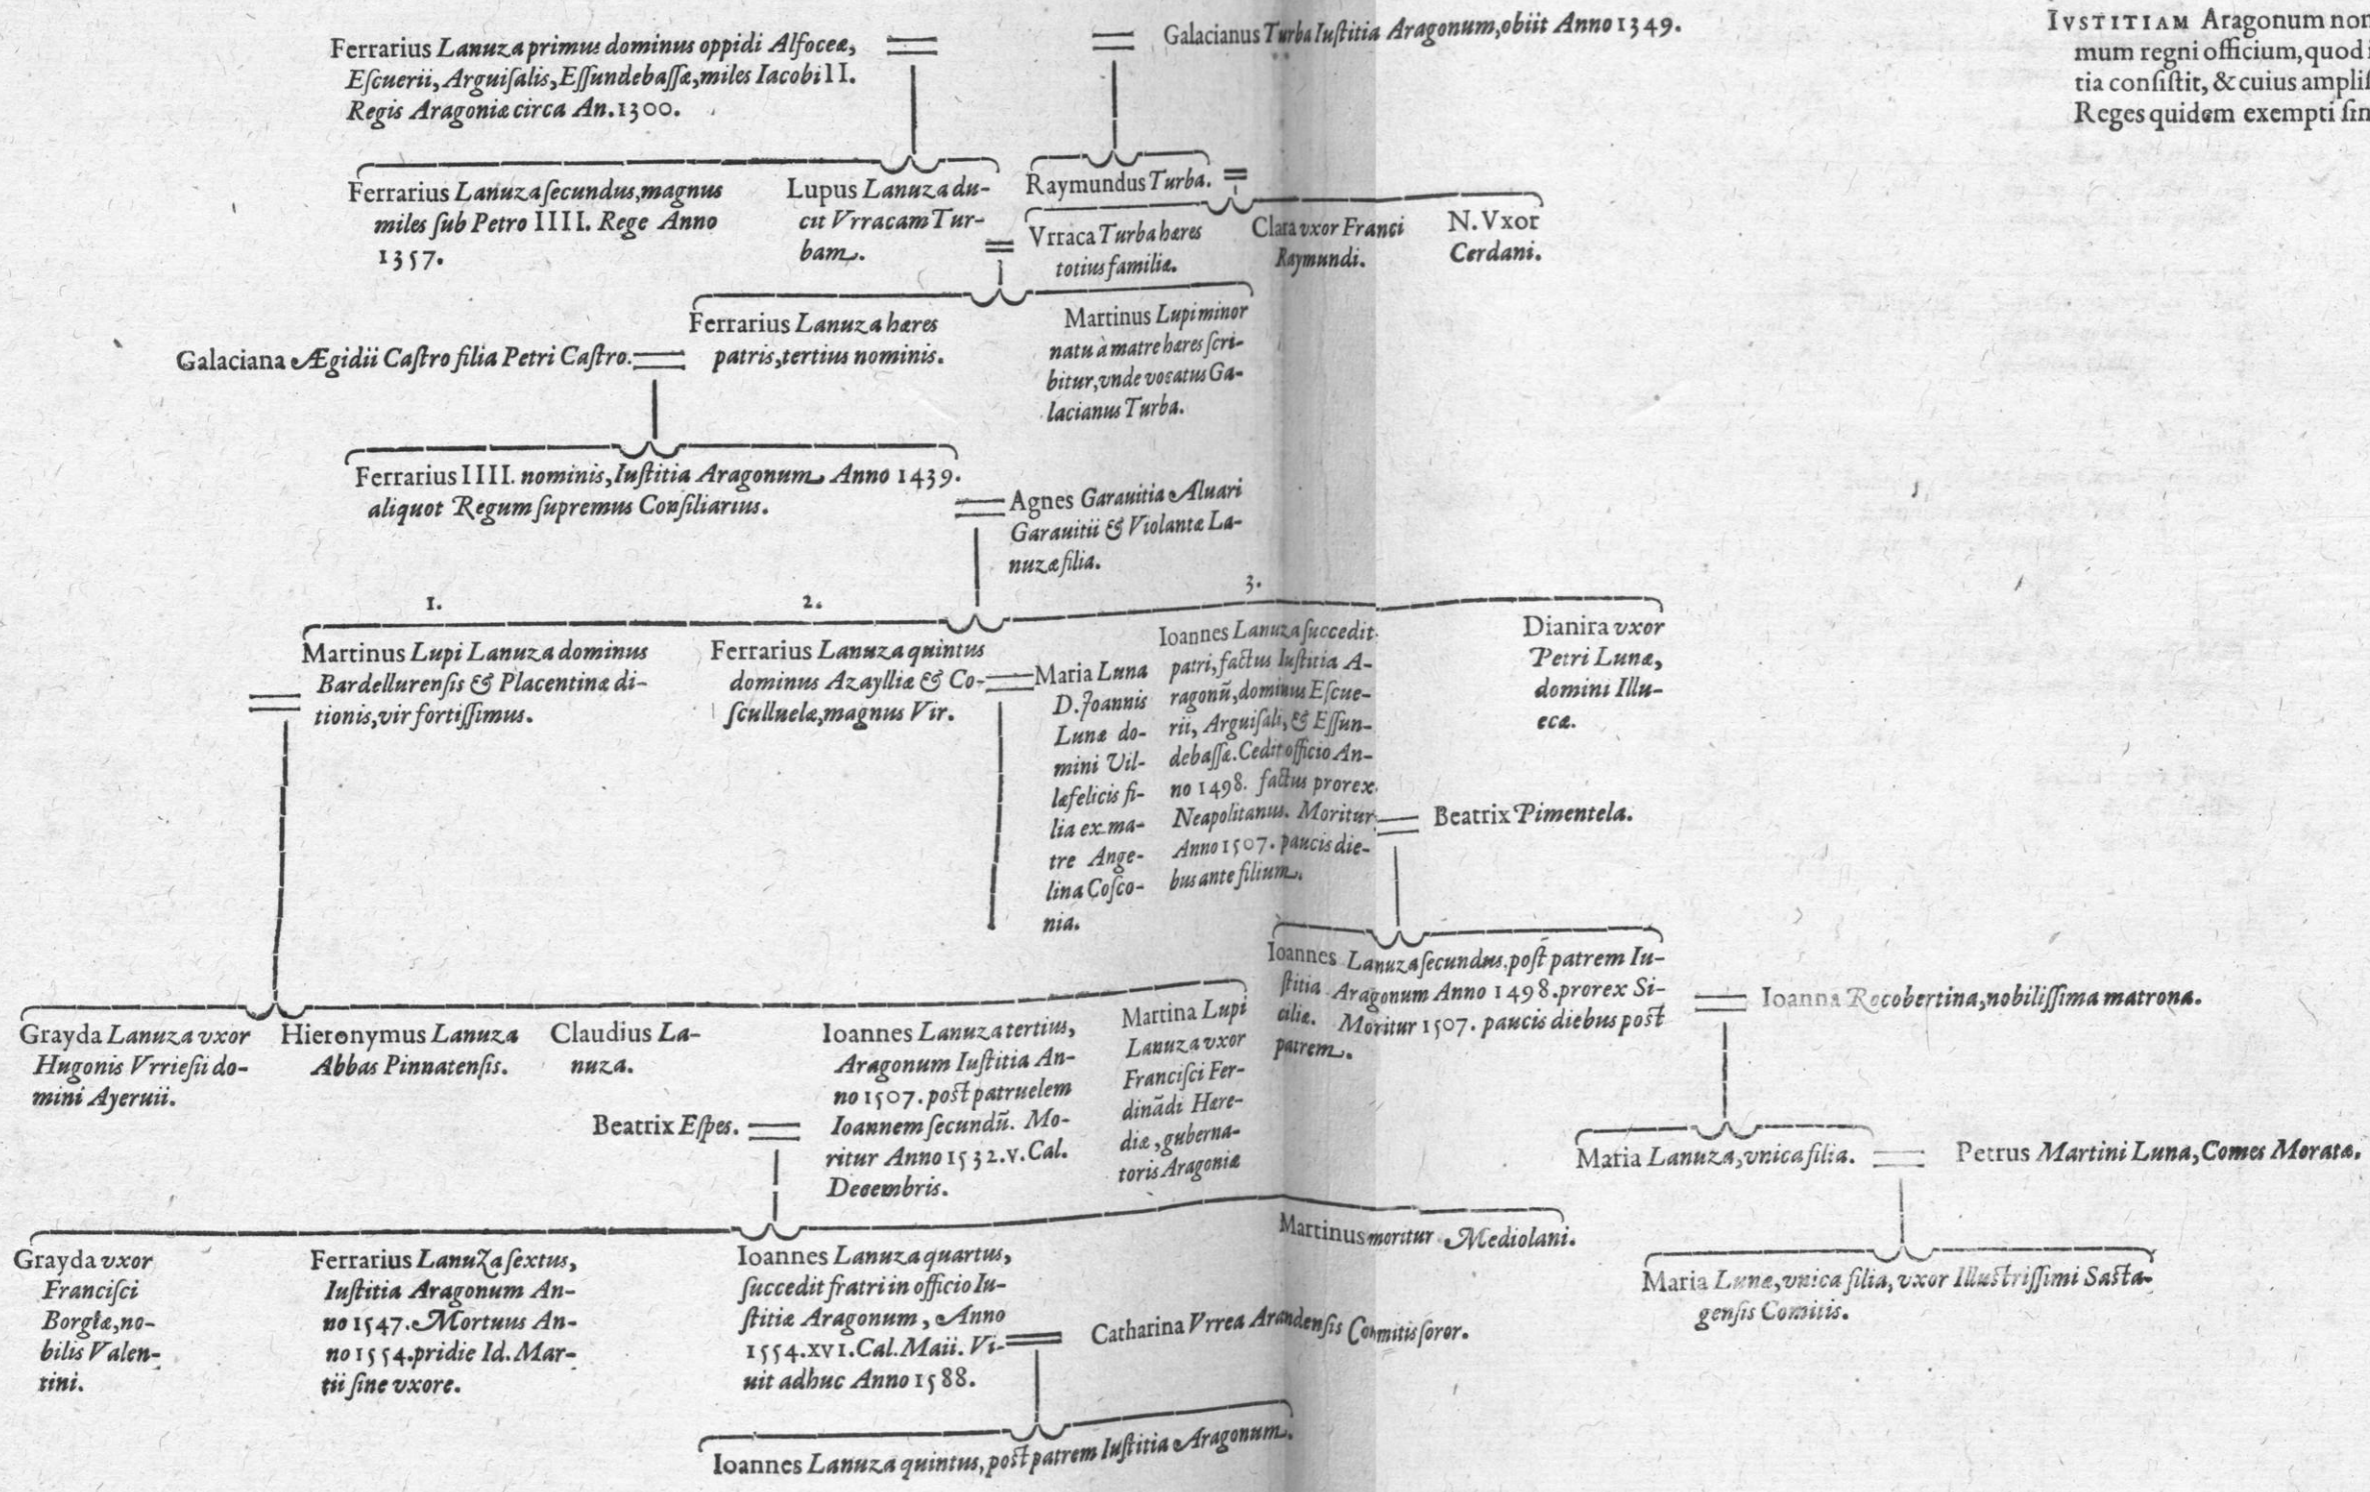 Ferrarius Lanuza primus dominus oppidi Alfoceæ,
Eſcuerii, Arguiſalis, Eſſundebaſſæ, miles Iacobi II.
Regis Aragoniæ circa An. 1300.
Galacianus Turba Iuſtitia Aragonum, obiit Anno 1349.
IVSTITIAM Aragonum
mum regni officium, quod
tia conſiſtit, & cuius
Reges quidem exempti
Ferrarius Lanuza ſecundus, magnus
miles ſub Petro IIII. Rege Anno
1357.
Lupus Lanuza du-
cit Vrracam Tur-
bam.
Raymundus Turba.
Vrraca Turba hæres
totius familiæ.
Clara vxor Franci
Raymundi.
N. Vxor
Cerdani.
Galaciana Ægidii Caſtro filia Petri Caſtro.
Ferrarius Lanuza hæres
patris, tertius nominis.
Martinus Lupi minor
natu à matre hæres ſcri-
bitur, vnde vocatus Ga-
lacianus Turba.
Ferrarius IIII. nominis, Iuſtitia Aragonum Anno 1439.
aliquot Regum ſupremus Conſiliarius.
Agnes Garauitia Aluari
Garauitii & Violantæ La-
nuzæ filia.
1.
Martinus Lupi Lanuza dominus
Bardellurenſis & Placentinæ di-
tionis, vir fortiſſimus.
2.
Ferrarius Lanuza quintus
dominus Azaylliæ & Co-
ſculluelæ, magnus Vir.
Maria Luna
D. Joannis
Lunæ do-
mini Vil-
læfelicis fi-
lia ex ma-
tre Ange-
lina Coſco-
nia.
3.
Ioannes Lanuza ſuccedit
patri, factus Iuſtitia A-
ragonũ, dominus Eſcue-
rii, Arguiſali, & Eſſun-
debaſſæ. Cedit officio An-
no 1498. factus prorex
Neapolitanus. Moritur
Anno 1507. paucis die-
bus ante filium.
Dianira vxor
Petri Lunæ,
domini Illu-
ecæ.
Beatrix Pimentela.
Ioannes Lanuza ſecundus, poſt patrem Iu-
ſtitia Aragonum Anno 1498. prorex Si-
ciliæ. Moritur 1507. paucis diebus poſt
patrem.
Ioanna Rocobertina, nobiliſſima matrona.
Grayda Lanuza vxor
Hugonis Vrrieſii do-
mini Ayeruii.
Hieronymus Lanuza
Abbas Pinnatenſis.
Claudius La-
nuza.
Beatrix Eſpes.
Ioannes Lanuza tertius,
Aragonum Iuſtitia An-
no 1507. poſt patruelem
Ioannem ſecundũ. Mo-
ritur Anno 1532. v. Cal.
Decembris.
Martina Lupi
Lanuza vxor
Franciſci Fer-
dinãdi Hære-
diæ, guberna-
toris Aragoniæ
Maria Lanuza, vnica filia.
Petrus Martini Luna, Comes Moratæ.
Grayda vxor
Franciſci
Borgiæ, no-
bilis Valen-
tini.
Ferrarius Lanuza ſextus,
Iuſtitia Aragonum An-
no 1547. Mortuus An-
no 1554. pridie Id. Mar-
tii ſine vxore.
Ioannes Lanuza quartus,
ſuccedit fratri in officio Iu-
ſtitiæ Aragonum, Anno
1554. XVI. Cal. Maii. Vi-
uit adhuc Anno 1588.
Catharina Vrrea Arandenſis Comitis ſoror.
Martinus moritur Mediolani.
Maria Lunæ, vnica filia, vxor Illuſtriſſimi Saſta-
genſis Comitis.
Ioannes Lanuza quintus, poſt patrem Iuſtitia Aragonum.